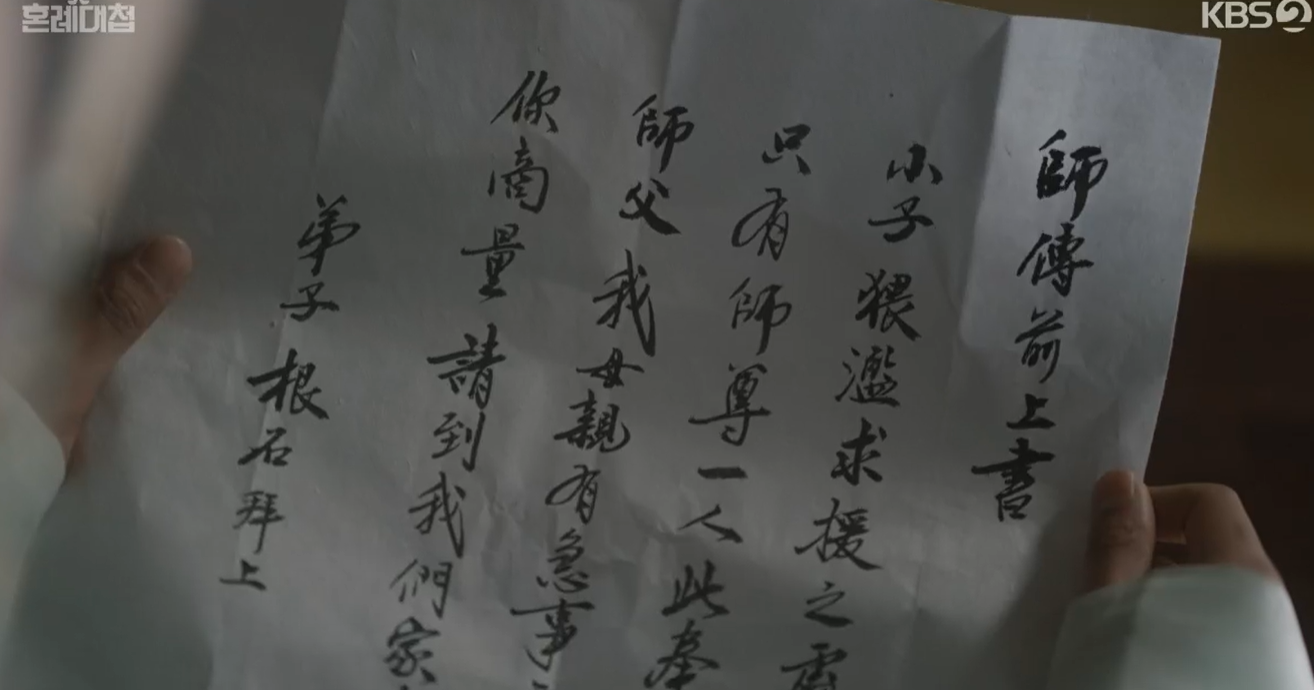 혼례대첩
KBS2
師傅前上書
小子猥濫求援之
只有師尊一人此奉
師父我母親有急事
你商量請到我們家
弟子根石拜上